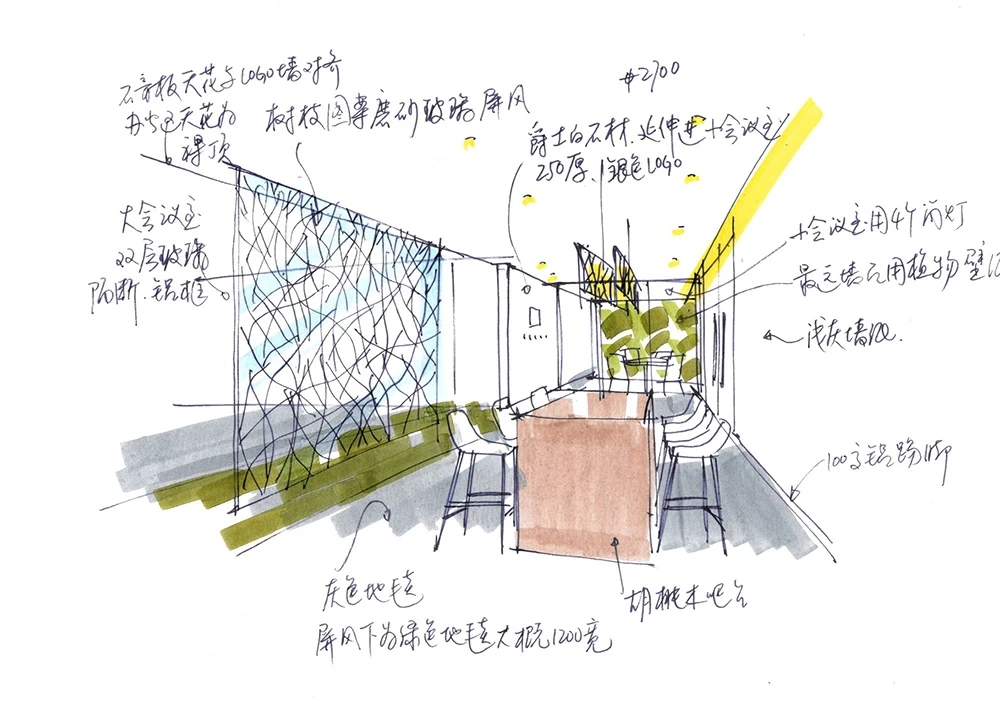 石膏板天花与LOGO墙对齐
办公区天花为
裸顶
树枝图案磨砂玻璃屏风
#2700
爵士白石材.延伸进小会议室
250厚.银色LOGO
大会议室
双层玻璃
隔断.铝框
小会议室用4个筒灯
最远墙面用植物壁
浅灰墙纸.
100高铝踢脚
灰色地毯
屏风下为绿色地毯大概1200宽
胡桃木吧台